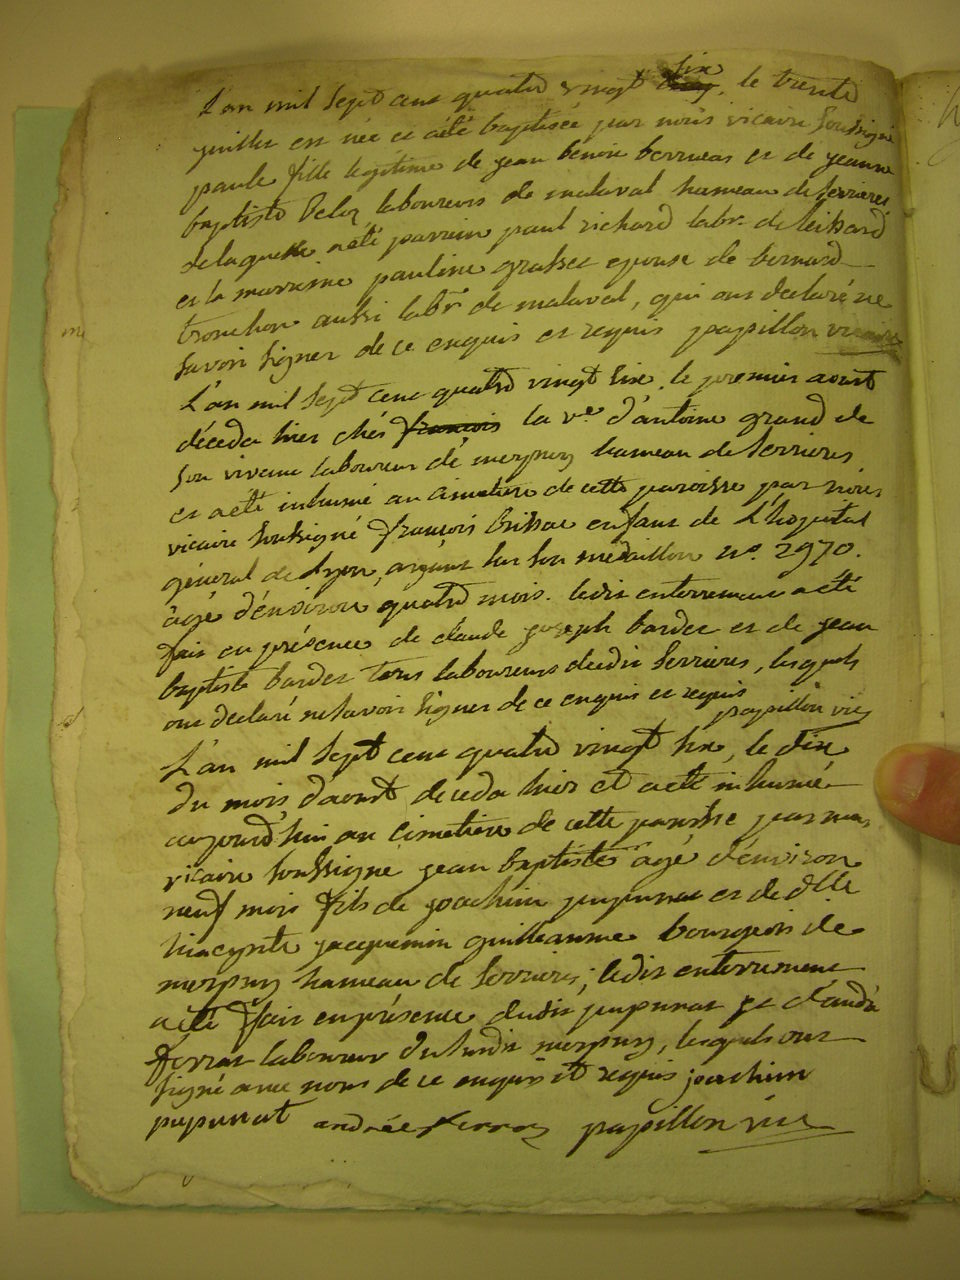 L'an mil sept cent quatre vingt six, le trente
juillet est née et a été baptisée par nous vicaire soussigné
paule fille légitime de jean benoit berrueas et de jeanne
baptiste Veloz laboureurs de malaval hameau de serrieres
de laquelle a été parrein paul richard labr. de leissard
et la marraine pauline grasset epouse de bernard
tronchon aussi labr de malaval, qui ont declaré ne
savoir signer de ce enquis et requis papillon vicaire
L'an mil sept cent quatre vingt six, le premier aoust
déceda hier chés françois la ve d'antoine grand de
son vivant laboureur de merpuis hameau de serrieres
et a été inhumé au cimetiere de cette paroisse par nous
vicaire soussigné françois brissac enfant de L'hopital
général de Lyon, ayant sur son médaillon no. 2970.
âgé d'environ quatre mois. ledit enterrement a été
fait en présence de claude joseph bardet et de jean
baptiste bardet tous laboureurs dudit serrieres, lesquels
ont declaré ne savoir signer de ce enquis et requis
papillon vic
L'an mil sept cent quatre vingt six, le dix
du mois d'aoust deceda hier et a été inhumé
aujourd'hui au cimetiere de cette paroisse par nous
vicaire soussigné jean baptiste agé d'environ
neuf mois fils de joachim pupunat et de dlle
hiacynte jacquemin guilleaume bourgeois de
merpuis hameau de serrieres; ledit enterrement
a été fait en présence dudit pupunat et d'andré
ferrat laboureur du susdit merpuis, lesquels ont
signé avec nous de ce enquis et requis joachim
pupunat andrée ferra papillon vic